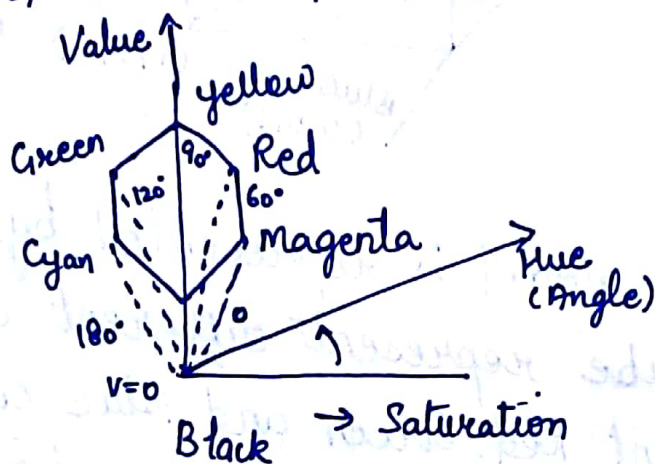 Value
yellow
Green
90°
Red
120°
60°
Cyan
Magenta
Hue
(Angle)
180°
0
V=0
Black
→ Saturation